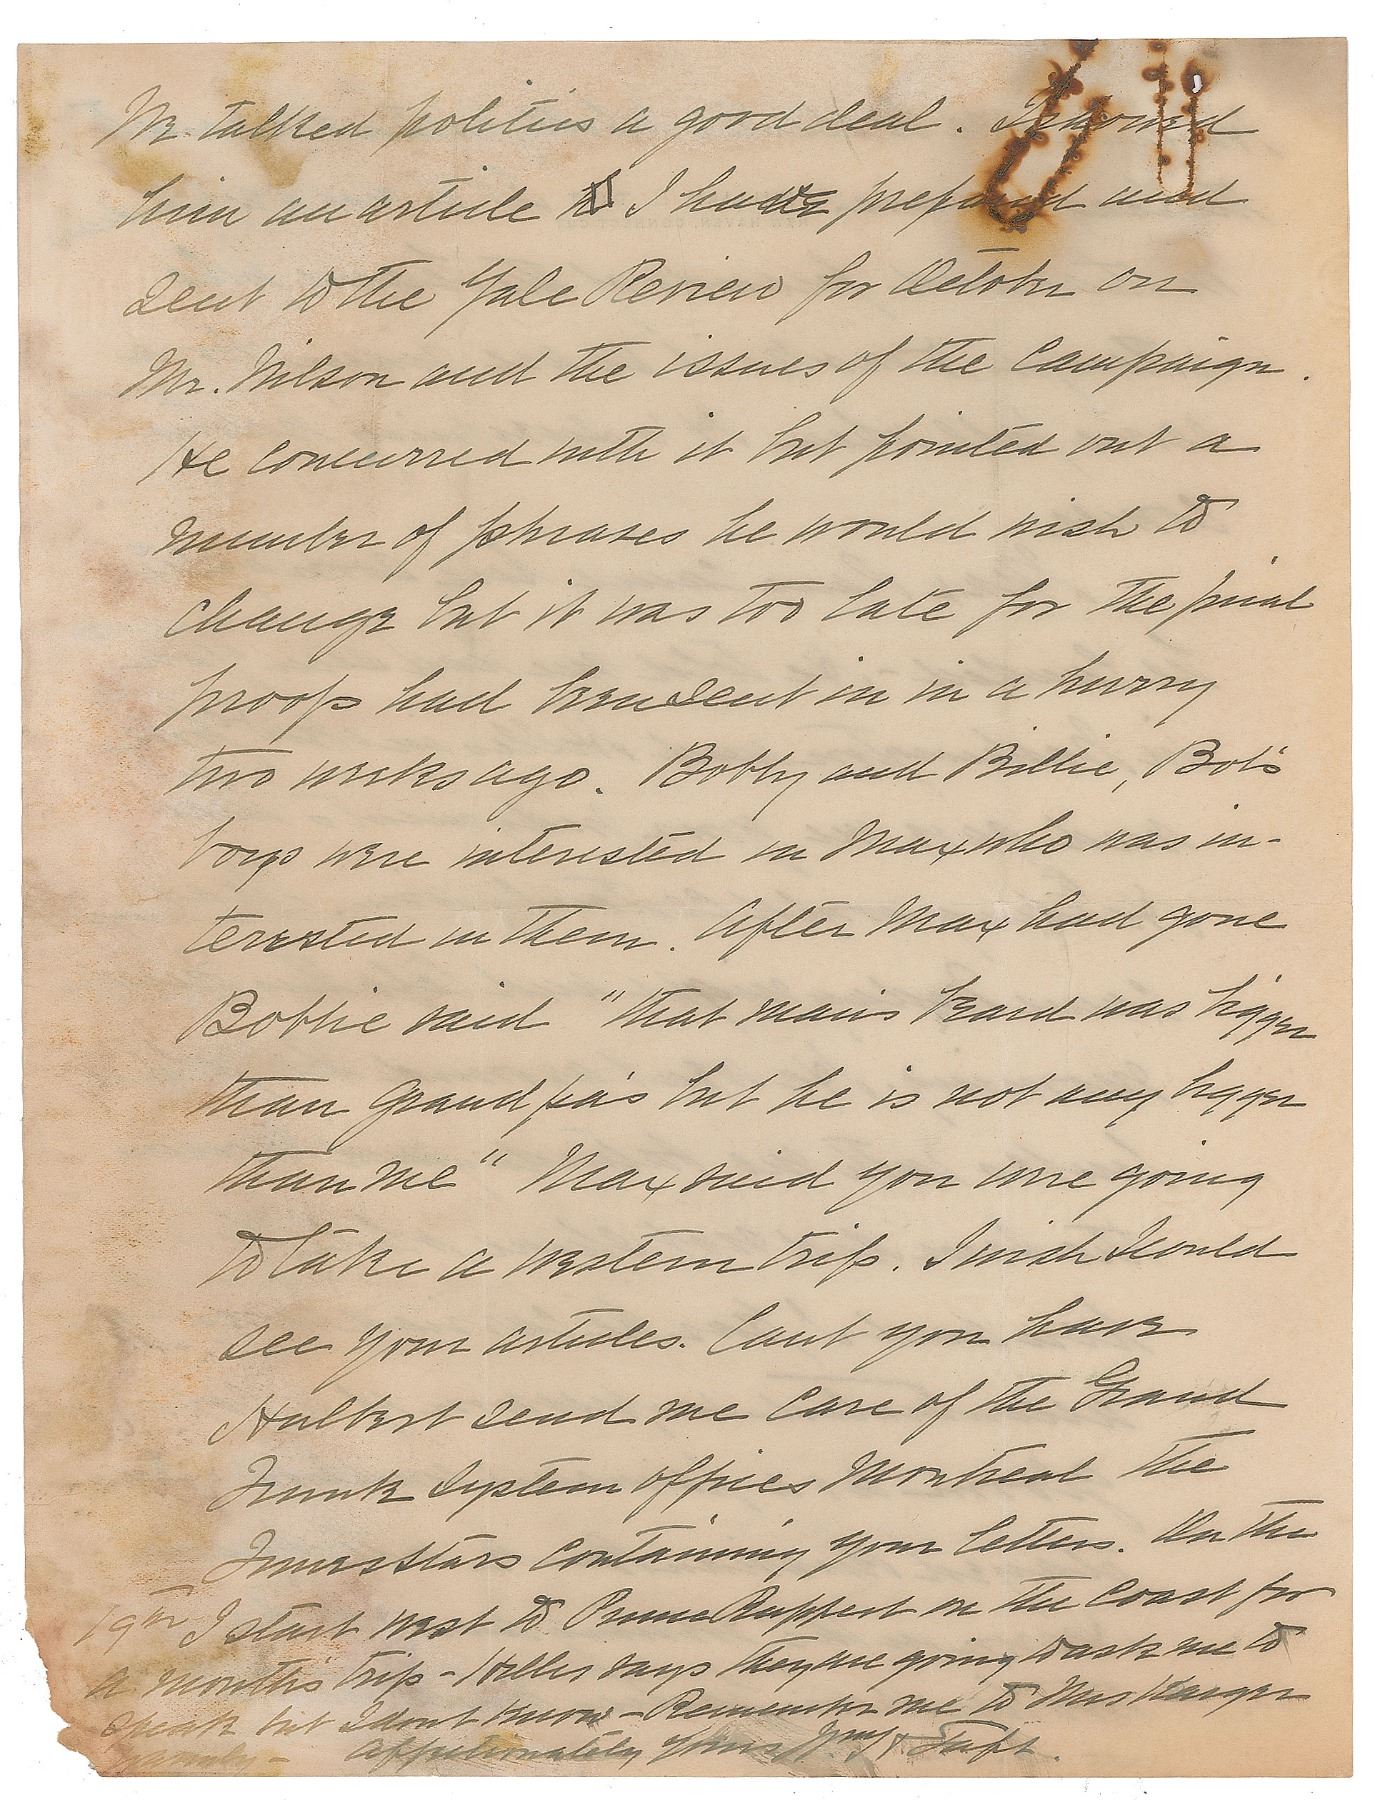 We talked politics a good deal. I showed
him an article I had prepared and
sent to the Yale Review for October on
Mr. Wilson and the issues of the Campaign.
He concurred with it but pointed out a
number of phrases he would wish to
change but it was too late for the final
proofs had been sent in in a hurry
two weeks ago. Bobby and Billie, Bob's
boys were interested in Max who was in-
terested in them. After Max had gone
Bobbie said "that man's beard was bigger
than Grandpa's but he is not any bigger
than me" Max said you were going
to take a western trip. I wish I could
see your articles. Cant you have
Hulbert send me care of the Grand
Trunk System offices Montreal the
Times Stars containing your letters. On the
19th I start west to Prince Ruppert on the Coast for
a month's trip - Hilles says they are going to ask me to
speak but I dont know - Remember me to Mrs Karger
Affectionately yours Wm H Taft.